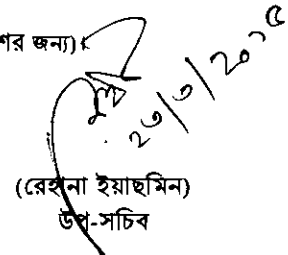 শের জন্য)
২৩/৩/২০১৫
(রেহানা ইয়াছমিন)
উপ-সচিব